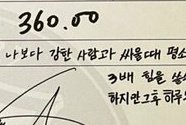 360.00
나보다 강한 사람과 싸울때 평소
3배 힘을
하지만 그후 하루